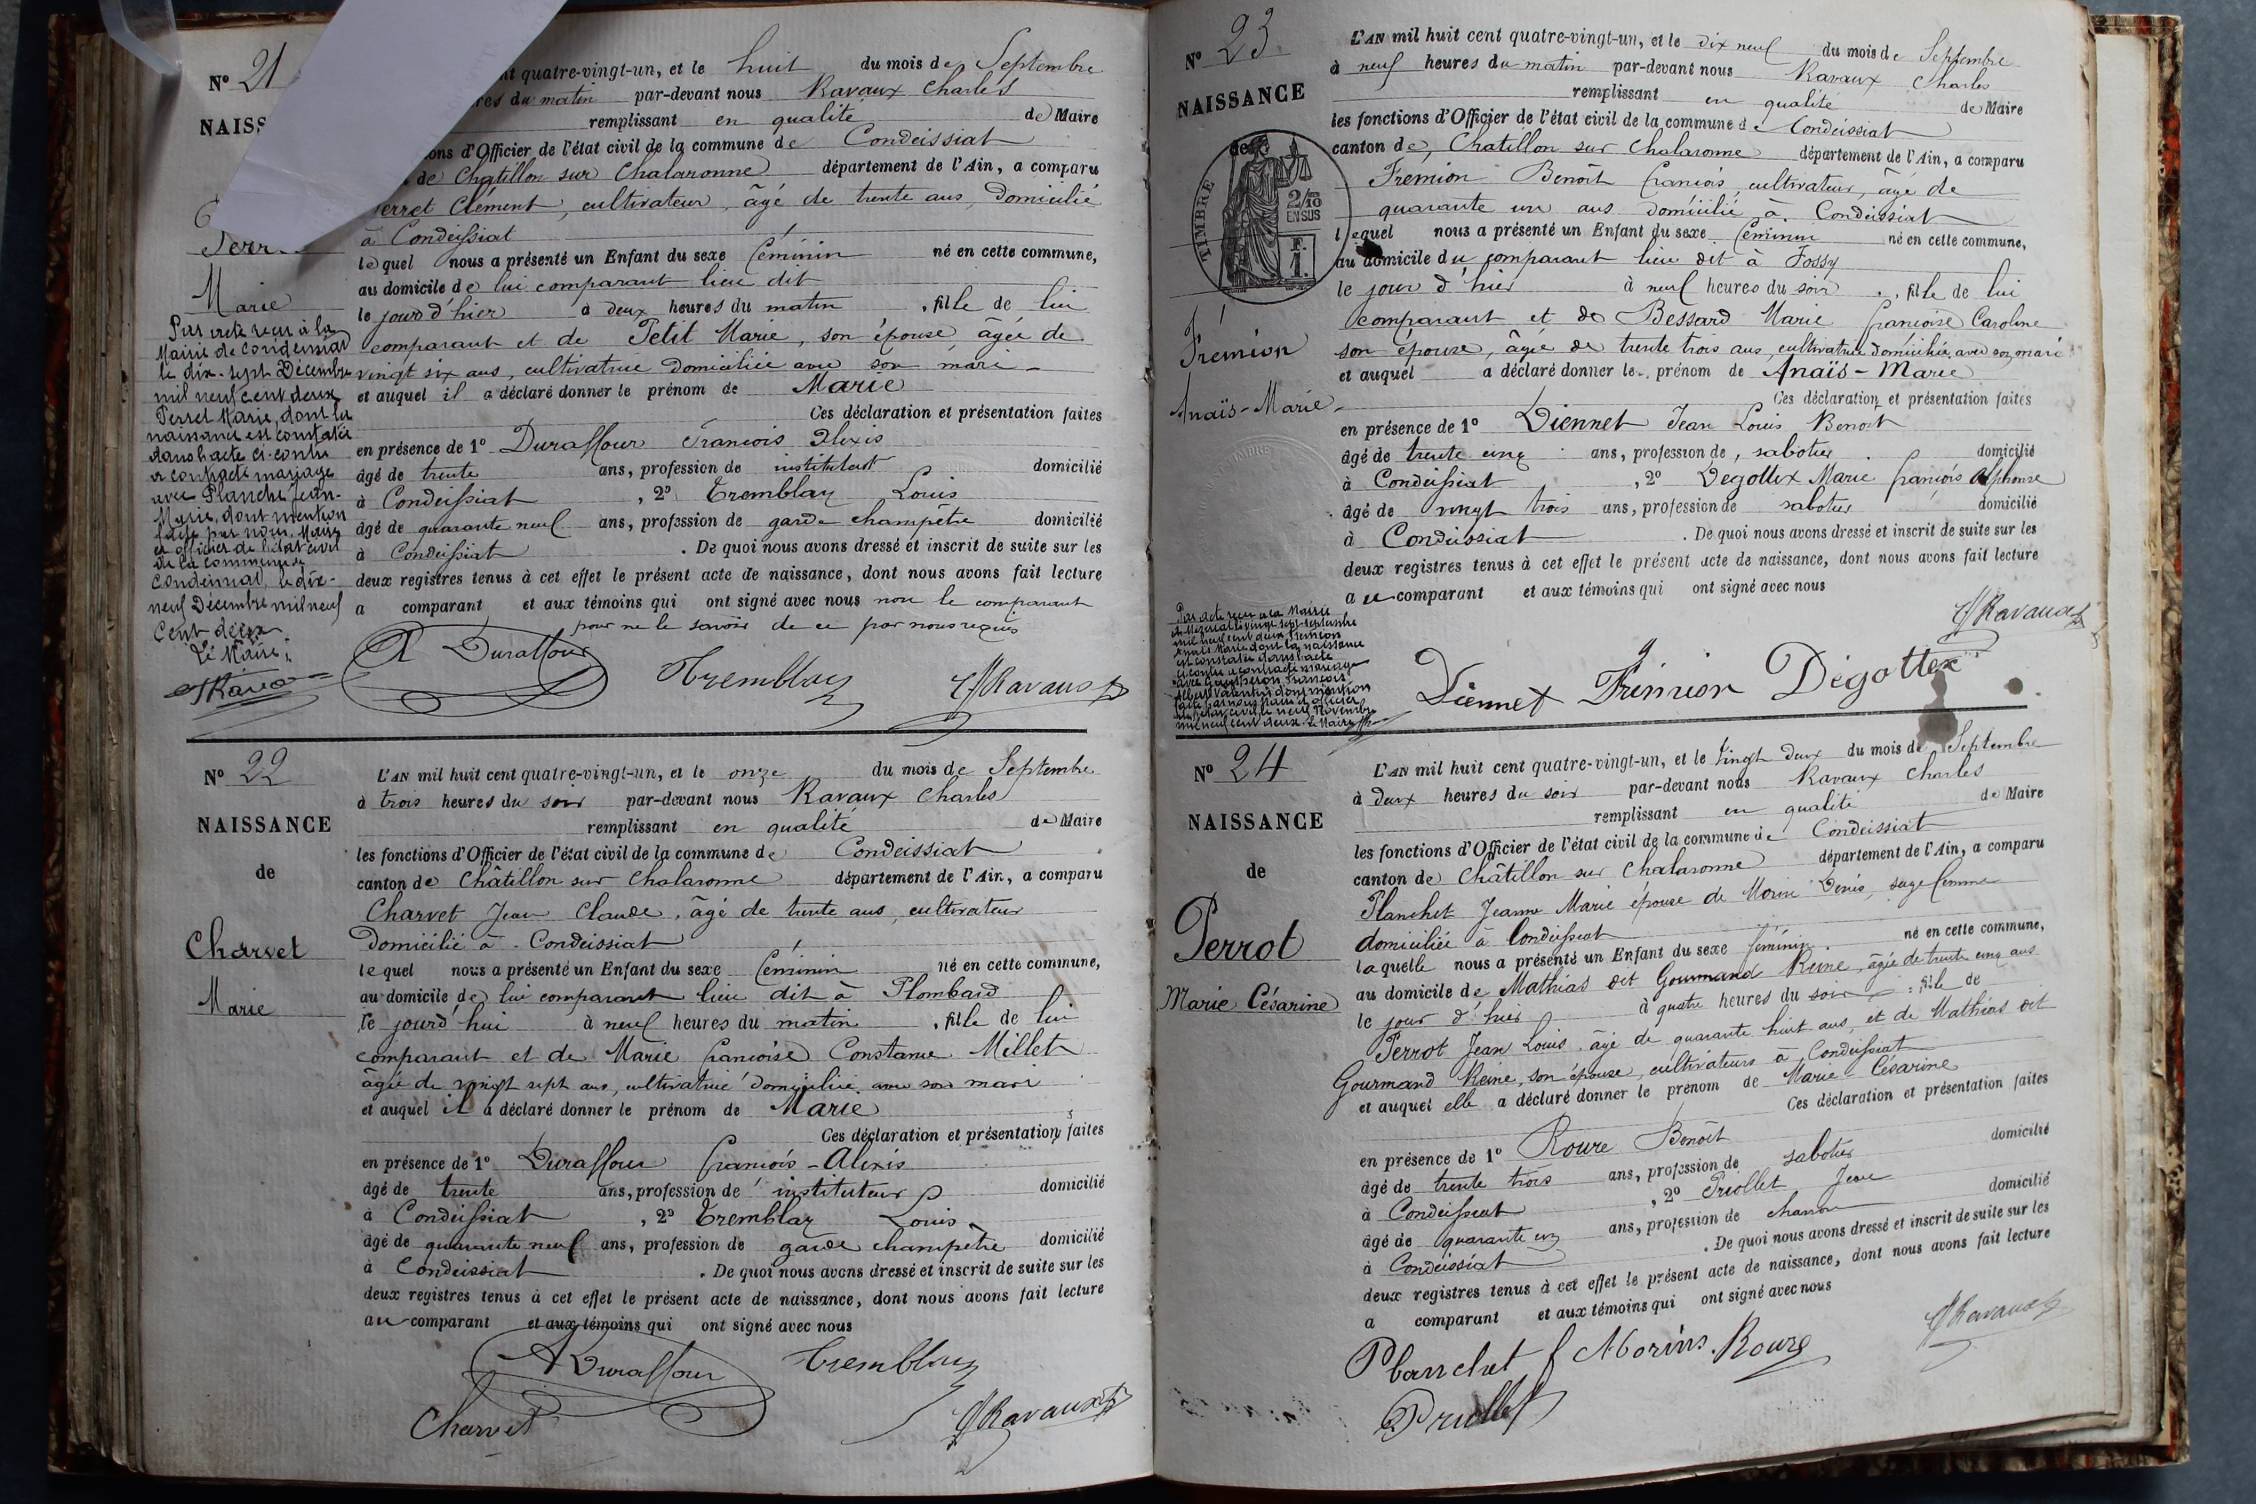 N° 21
NAISS
Perr
Marie
Par acte reçu à la
Mairie de Condeissiat
le dix-sept Décembre
mil neuf cent deux
Perret Marie, dont la
naissance est constatée
dans l'acte ci-contre
a contracté mariage
avec Planche Jean-
Marie, dont mention
faite par nous, Maire
et officier de l'état civil
de la commune de
Condeissiat, le dix-
neuf Décembre mil neuf
cent deux.
Le Maire,
Ravaux
nt quatre-vingt-un, et le huit du mois de Septembre
res du matin par-devant nous Ravaux Charles
remplissant en qualité de Maire
ons d'Officier de l'état civil de la commune de Condeissiat
de Châtillon sur Chalaronne département de l'Ain, a comparu
erret Clément, cultivateur, âgé de trente ans, domicilié
à Condeissiat
lequel nous a présenté un Enfant du sexe féminin né en cette commune,
au domicile de lui comparant lieu dit
le jour d'hier à deux heures du matin, fille de lui
comparant et de Petit Marie, son épouse, âgée de
vingt six ans, cultivatrice domiciliée avec son mari
et auquel il a déclaré donner le prénom de Marie
Ces déclaration et présentation faites
en présence de 1° Duraffour François Alexis
âgé de trente ans, profession de instituteur domicilié
à Condeissiat, 2° Tremblay Louis
âgé de quarante neuf ans, profession de garde champêtre domicilié
à Condeissiat. De quoi nous avons dressé et inscrit de suite sur les
deux registres tenus à cet effet le présent acte de naissance, dont nous avons fait lecture
a comparant et aux témoins qui ont signé avec nous non le comparant
pour ne le savoir de ce par nous requis
A Duraffour Tremblay Ravaux
N° 22
NAISSANCE
de
Charvet
Marie
L'AN mil huit cent quatre-vingt-un, et le onze du mois de Septembre
à trois heures du soir par-devant nous Ravaux Charles
remplissant en qualité de Maire
les fonctions d'Officier de l'état civil de la commune de Condeissiat
canton de Châtillon sur Chalaronne département de l'Ain, a comparu
Charvet Jean Claude, âgé de trente ans, cultivateur
domicilié à Condeissiat
lequel nous a présenté un Enfant du sexe féminin né en cette commune,
au domicile de lui comparant lieu dit à Plombard
le jourd'hui à neuf heures du matin, fille de lui
comparant et de Marie françoise Constance Millet
âgée de vingt sept ans, cultivatrice domiciliée avec son mari
et auquel il a déclaré donner le prénom de Marie
Ces déclaration et présentation faites
en présence de 1° Duraffour françois-Alexis
âgé de trente ans, profession de instituteur domicilié
à Condeissiat, 2° Tremblay Louis
âgé de quarante neuf ans, profession de garde champêtre domicilié
à Condeissiat. De quoi nous avons dressé et inscrit de suite sur les
deux registres tenus à cet effet le présent acte de naissance, dont nous avons fait lecture
au comparant et aux témoins qui ont signé avec nous
A Duraffour Tremblay
Charvet Ravaux
N° 23
NAISSANCE
de
TIMBRE
2/10
EN SUS
F.
1.
Frémion
Anaïs-Marie
Par acte reçu à la Mairie
de Mézériat le vingt sept septembre
mil neuf cent deux, Frémion
Anaïs Marie dont la naissance
est constatée dans l'acte
ci-contre a contracté mariage
avec François
Albert Valentin dont mention
faite par nous Maire et officier
de l'état civil le neuf Novembre
mil neuf cent deux. Le Maire
L'AN mil huit cent quatre-vingt-un, et le dix neuf du mois de Septembre
à neuf heures du matin par-devant nous Ravaux Charles
remplissant en qualité de Maire
les fonctions d'Officier de l'état civil de la commune de Condeissiat
canton de Chatillon sur Chalaronne département de l'Ain, a comparu
Fremion Benoît françois, cultivateur, âgé de
quarante un ans domicilié à Condeissiat
lequel nous a présenté un Enfant du sexe féminin né en cette commune,
au domicile du comparant lieu dit à Fossy
le jour d'hier à neuf heures du soir, fille de lui
comparant et de Bessard Marie françoise Caroline
son épouse, âgée de trente trois ans, cultivatrice domiciliée avec son mari
et auquel a déclaré donner le prénom de Anaïs-Marie
Ces déclaration et présentation faites
en présence de 1° Diennet Jean Louis Benoit
âgé de trente cinq ans, profession de sabotier domicilié
à Condeissiat, 2° Dégottex Marie françois Alphonse
âgé de vingt trois ans, profession de sabotier domicilié
à Condeissiat. De quoi nous avons dressé et inscrit de suite sur les
deux registres tenus à cet effet le présent acte de naissance, dont nous avons fait lecture
au comparant et aux témoins qui ont signé avec nous
Ravaux
Diennet Frémion Dégottex
N° 24
NAISSANCE
de
Perrot
Marie Césarine
L'AN mil huit cent quatre-vingt-un, et le vingt deux du mois de Septembre
à deux heures du soir par-devant nous Ravaux Charles
remplissant en qualité de Maire
les fonctions d'Officier de l'état civil de la commune de Condeissiat
canton de Châtillon sur Chalaronne département de l'Ain, a comparu
Planchet Jeanne Marie épouse de Morin Denis, sage femme
domiciliée à Condeissiat
laquelle nous a présenté un Enfant du sexe féminin né en cette commune,
au domicile de Mathias dit Gourmand Reine, âgée de trente cinq ans
le jour d'hier à quatre heures du soir, fille de
Perrot Jean Louis âgé de quarante huit ans, et de Mathias dit
Gourmand Reine, son épouse, cultivateurs à Condeissiat
et auquel elle a déclaré donner le prénom de Marie-Césarine
Ces déclaration et présentation faites
en présence de 1° Roure Benoît domicilié
âgé de trente trois ans, profession de sabotier
à Condeissiat, 2° Priollet Jean domicilié
âgé de quarante un ans, profession de charron
à Condeissiat. De quoi nous avons dressé et inscrit de suite sur les
deux registres tenus à cet effet le présent acte de naissance, dont nous avons fait lecture
a comparant et aux témoins qui ont signé avec nous
Planchet f Morin Roure Ravaux
Priollet